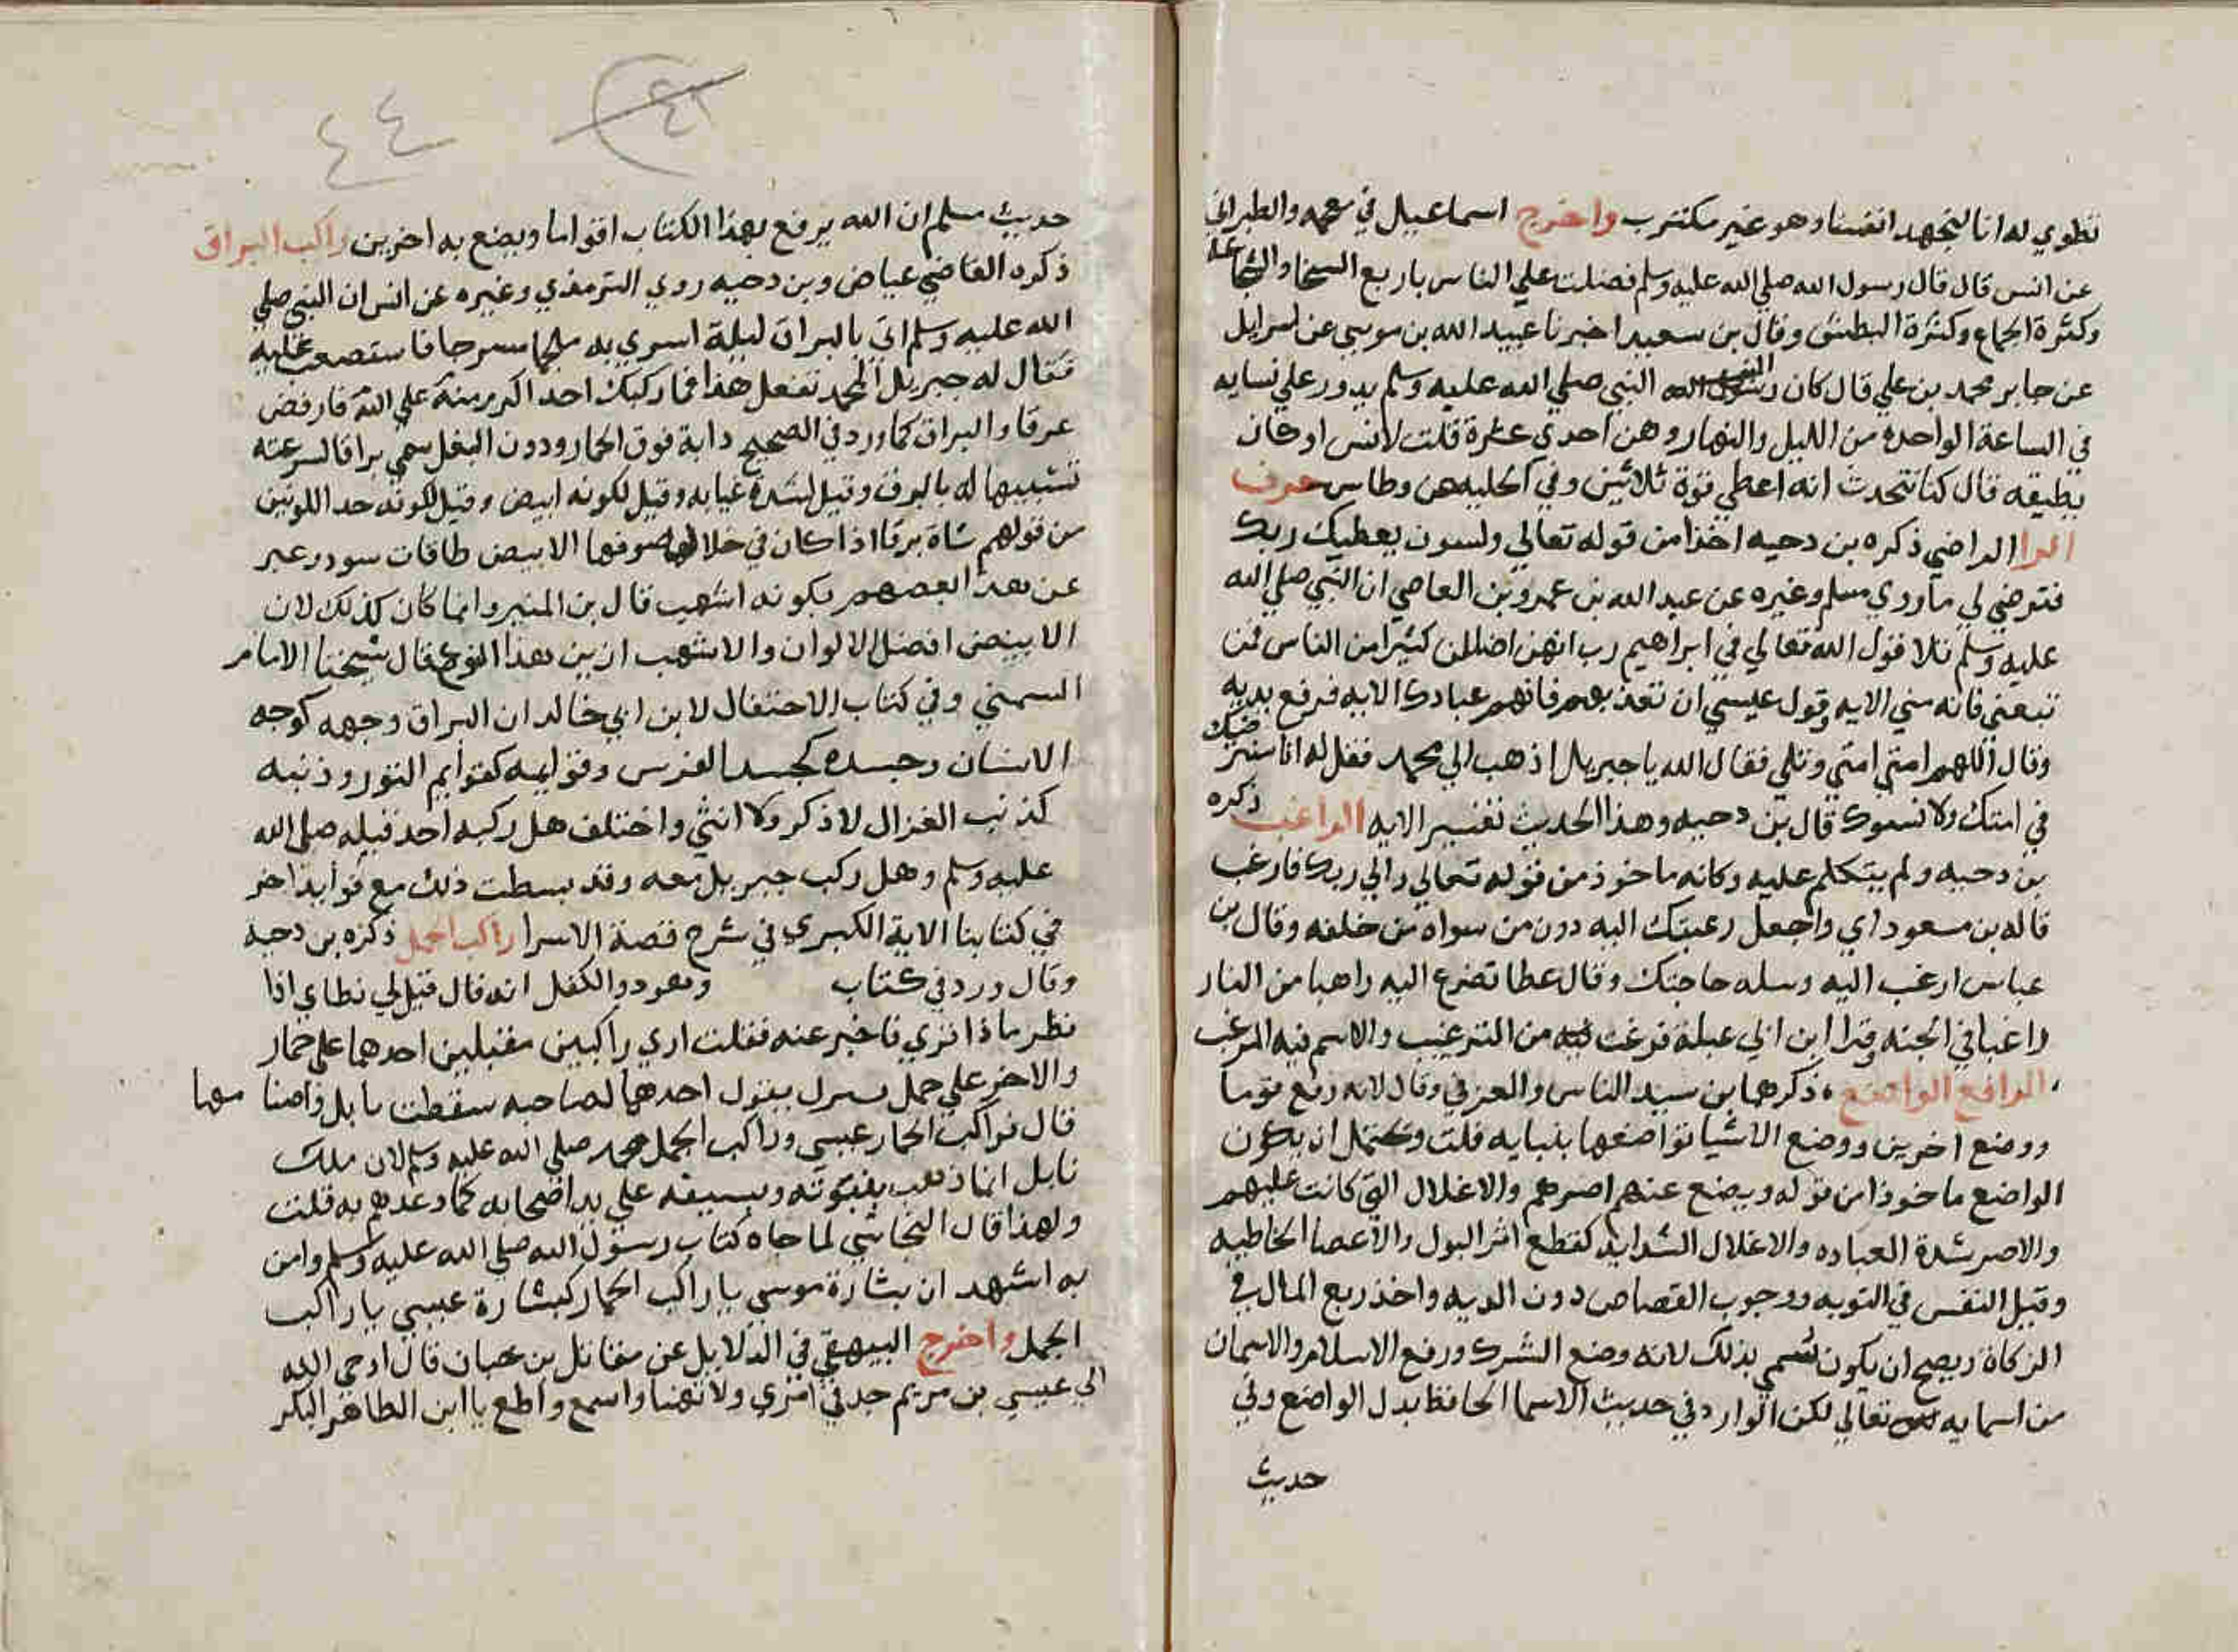 تطوي له انا لنجهد انفسنا وهو غير مكترب واخرج اسماعيل في معجمه والطبراني
عن انس قال قال رسول الله صلي الله عليه وسلم فضلت علي الناس باربع السخا والشجاعة
وكثرة الجماع وكثرة البطش وقال بن سعيد اخبرنا عبيد الله بن موسي عن اسرايل
عن جابر محمد بن علي قال كان النبي صلي الله عليه وسلم يدور علي نسايه
في الساعة الواحده من الليل والنهار وهن احدي عشرة قلت لانس اوكان
يطيقه قال كنا نتحدث انه اعطي قوة ثلاثين وفي الحليه عن وطاس حرف
الرا الراضي ذكره بن دحيه اخذا من قوله تعالي ولسوف يعطيك ربك
فترضي لي ماروي مسلم وغيره عن عبد الله بن عمرو بن العاصي ان النبي صلي الله
عليه وسلم تلا قول الله تعالي في ابراهيم رب انهن اضللن كثيرا من الناس فمن
تبعني فانه مني الايه وقول عيسي ان تعذبهم فانهم عبادك الايه فرفع يديه
وقال اللهم امتي امتي وتلي فقال الله ياجبريل اذهب الي محمد فقل له انا سنرضيك
في امتك ولا نسوك قال بن دحيه وهذا الحديث تفسير الايه الراغب ذكره
بن دحيه ولم يتكلم عليه وكانه ماخوذ من قوله تعالي والي ربك فارغب
قاله بن مسعود اي واجعل رغبتك اليه دون من سواه من خلقه وقال بن
عباس ارغب اليه وسله حاجتك وقال عطا تضرع اليه راهبا من النار
راغبا في الجنه وقرا ابن ابي عبلة فرغب من الترغيب والاسم فيه المرغب
الرافع الواضع ذكرهما بن سيد الناس والعزفي وقال لانه رفع قوما
ووضع اخرين ووضع الاشيا تواضعها ببيانه قلت ويحتمل ان يكون
الواضع ماخوذا من قوله ويضع عنهم اصرهم والاغلال التي كانت عليهم
والاصر شدة العباده والاغلال الشدايد كقطع اثر البول والاعضا الخاطيه
وقتل النفس في التوبه ووجوب القصاص دون الديه واخذ ربع المال في
الزكاة ويصح ان يكون تسمي بذلك لانه وضع الشرك ورفع الاسلام والايمان
من اسمايه تعالي لكن الوارد في حديث الاسما الحافظ بدل الواضع وفي
حديث
٤٢
٤٤
حديث مسلم ان الله يرفع بهذا الكتاب اقواما ويضع به اخرين راكب البراق
ذكره القاضي عياض وبن دحيه روي الترمذي وغيره عن انس ان النبي صلي
الله عليه وسلم اتي بالبراق ليلة اسري به ملجما مسرجا فاستصعب عليه
فقال له جبريل المحمد تفعل هذا فما ركبك احد اكرم منه علي الله فارفض
عرقا والبراق كما ورد في الصحيح دابة فوق الحمار ودون البغل سمي براقا لسرعته
تشبيها له بالبرق وقيل لشدة غيابه وقيل لكونه ابيض وقيل لكونه حد اللونين
من قولهم شاة برقا اذا كان في خلال صوفها الابيض طاقات سود وعبر
عن هذا بعضهم بكونه اشهب قال بن المنير وانما كان كذلك لان
الابيض افضل الالوان والاشهب ازين هذا النوع قال شيخنا الامام
السمني وفي كتاب الاحتفال لابن ابي خالد ان البراق وجهه كوجه
الانسان وجسده كجسد الفرس وقوايمه كقوايم الثور وذنبه
كذنب الغزال لا ذكر ولا انثي واختلف هل ركبه احد قبله صلي الله
عليه وسلم وهل ركب جبريل معه وقد بسطت ذلك مع فوايد اخر
في كتابنا الاية الكبري في شرح قصة الاسرا راكب الجمل ذكره بن دحية
وقال ورد في كتاب وهو ذو الكفل انه قال قيل لي نطاي اذا
نظر ماذا تري فاخبر عنه فقلت اري راكبين مقبلين احدهما علي حمار
والاخر علي جمل يقول احدهما لصاحبه سقطت بابل واصنامها
قال فراكب الحمار عيسي وراكب الجمل محمد صلي الله عليه وسلم لان ملك
نابل انما ذهب بنبوته وبسيفه علي يد اصحابه كما وعدهم به قلت
ولهذا قال النجاشي لما جاه كتاب رسول الله صلي الله عليه وسلم وامن
به اشهد ان بشارة موسي براكب الحمار كبشارة عيسي براكب
الجمل واخرج البيهقي في الدلايل عن مقاتل بن حبان قال اوحي الله
الي عيسي بن مريم جد في امري ولا تهنا واسمع واطع يا ابن الطاهر البكر